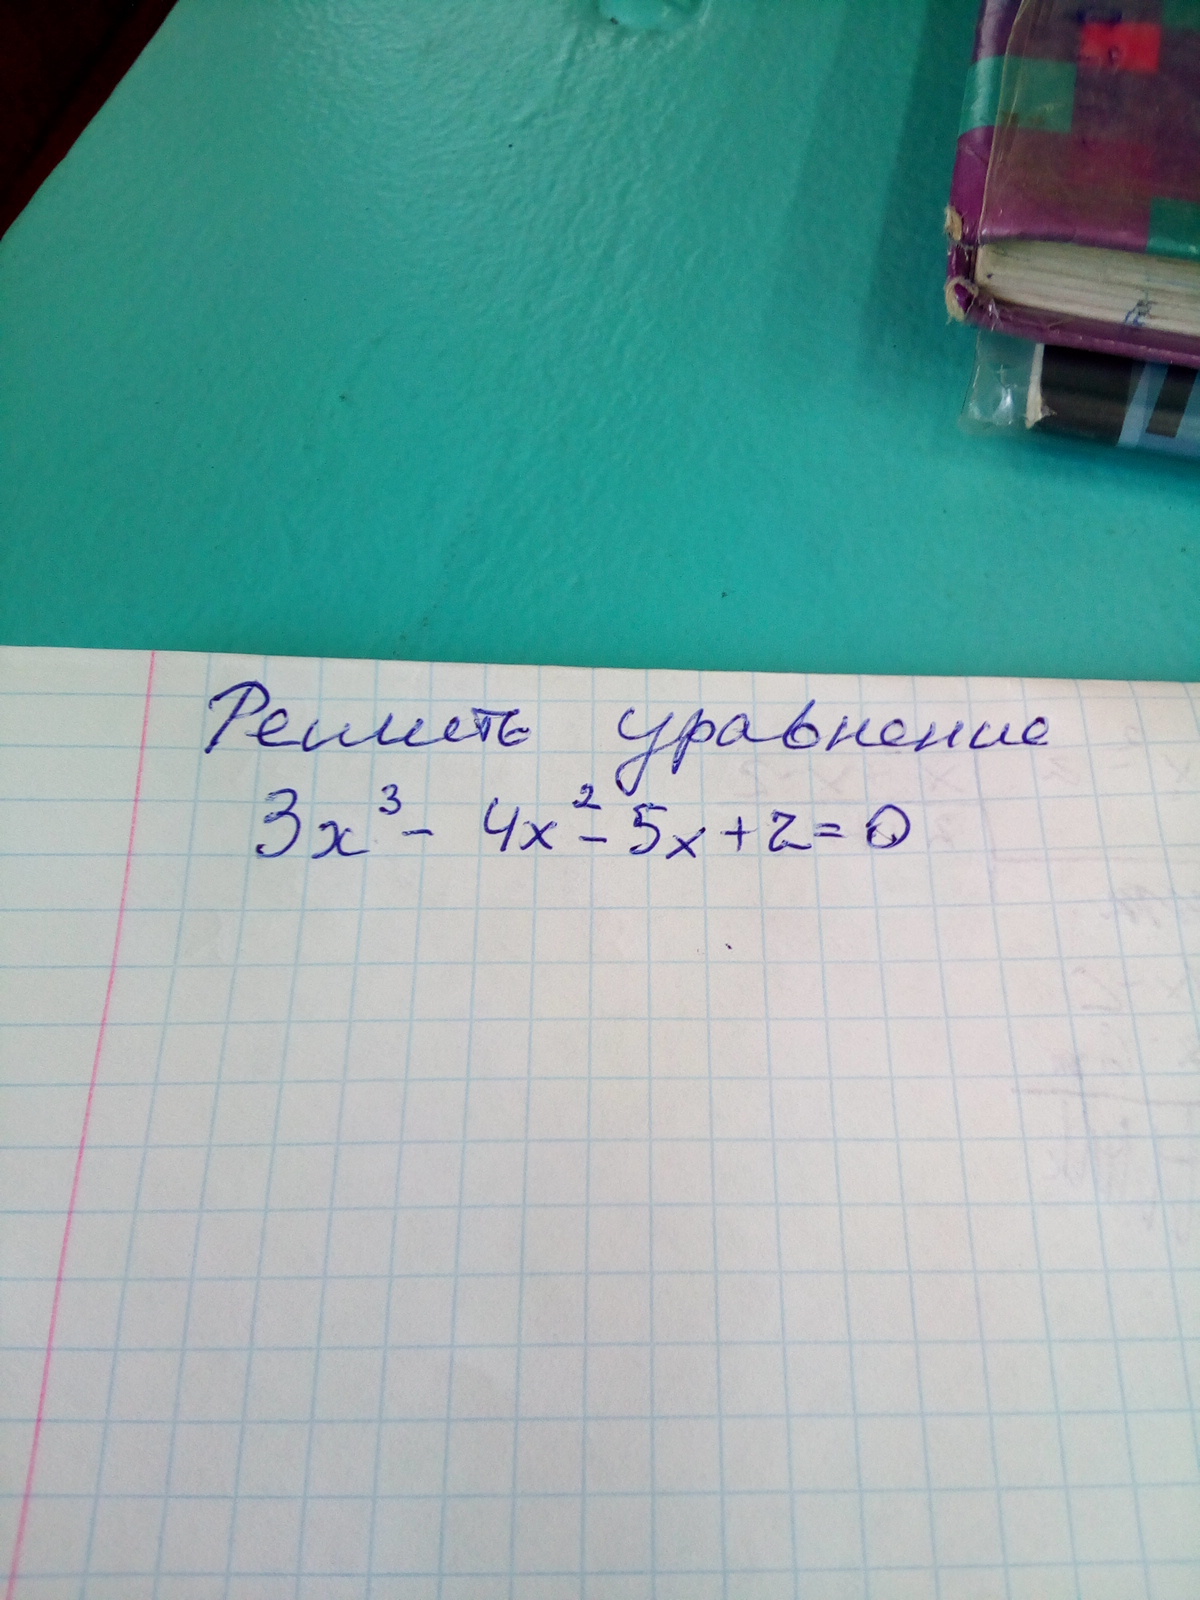 Решить уравнение
3x³ - 4x² - 5x + 2 = 0